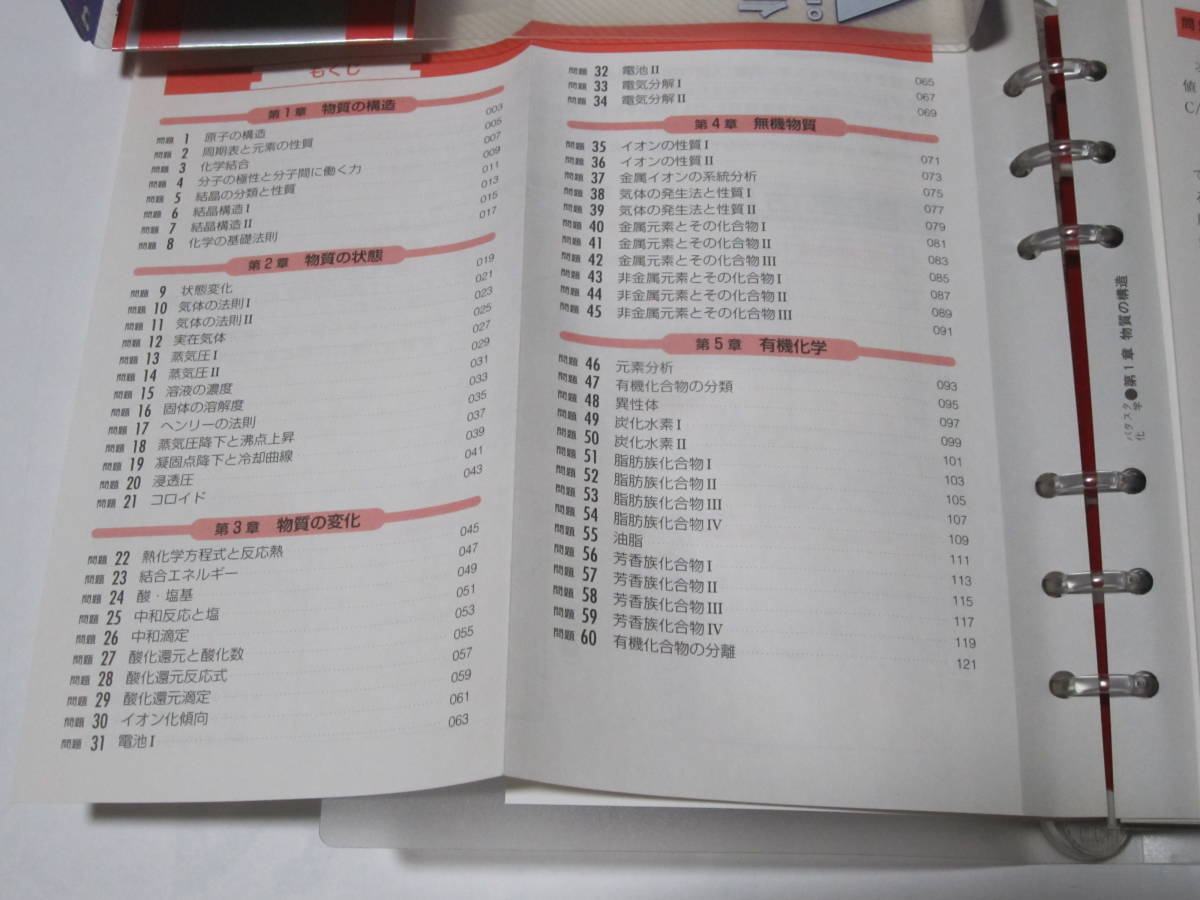 もくじ
第1章 物質の構造
問題 1 原子の構造 003
問題 2 周期表と元素の性質 005
問題 3 化学結合 007
問題 4 分子の極性と分子間に働く力 009
問題 5 結晶の分類と性質 011
問題 6 結晶構造Ⅰ 013
問題 7 結晶構造Ⅱ 015
問題 8 化学の基礎法則 017
第2章 物質の状態
問題 9 状態変化 019
問題 10 気体の法則Ⅰ 021
問題 11 気体の法則Ⅱ 023
問題 12 実在気体 025
問題 13 蒸気圧Ⅰ 027
問題 14 蒸気圧Ⅱ 029
問題 15 溶液の濃度 031
問題 16 固体の溶解度 033
問題 17 ヘンリーの法則 035
問題 18 蒸気圧降下と沸点上昇 037
問題 19 凝固点降下と冷却曲線 039
問題 20 浸透圧 041
問題 21 コロイド 043
第3章 物質の変化
問題 22 熱化学方程式と反応熱 045
問題 23 結合エネルギー 047
問題 24 酸・塩基 049
問題 25 中和反応と塩 051
問題 26 中和滴定 053
問題 27 酸化還元と酸化数 055
問題 28 酸化還元反応式 057
問題 29 酸化還元滴定 059
問題 30 イオン化傾向 061
問題 31 電池Ⅰ 063
問題 32 電池Ⅱ 065
問題 33 電気分解Ⅰ 067
問題 34 電気分解Ⅱ 069
第4章 無機物質
問題 35 イオンの性質Ⅰ 071
問題 36 イオンの性質Ⅱ 073
問題 37 金属イオンの系統分析 075
問題 38 気体の発生法と性質Ⅰ 077
問題 39 気体の発生法と性質Ⅱ 079
問題 40 金属元素とその化合物Ⅰ 081
問題 41 金属元素とその化合物Ⅱ 083
問題 42 金属元素とその化合物Ⅲ 085
問題 43 非金属元素とその化合物Ⅰ 087
問題 44 非金属元素とその化合物Ⅱ 089
問題 45 非金属元素とその化合物Ⅲ 091
第5章 有機化学
問題 46 元素分析 093
問題 47 有機化合物の分類 095
問題 48 異性体 097
問題 49 炭化水素Ⅰ 099
問題 50 炭化水素Ⅱ 101
問題 51 脂肪族化合物Ⅰ 103
問題 52 脂肪族化合物Ⅱ 105
問題 53 脂肪族化合物Ⅲ 107
問題 54 脂肪族化合物Ⅳ 109
問題 55 油脂 111
問題 56 芳香族化合物Ⅰ 113
問題 57 芳香族化合物Ⅱ 115
問題 58 芳香族化合物Ⅲ 117
問題 59 芳香族化合物Ⅳ 119
問題 60 有機化合物の分離 121
●第1章 物質の構造
値
C/